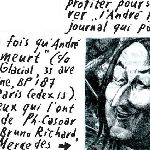 profiter pour s
rer "l'André r
journal qui po
fois qu'André
meurt (Yo
Glacial, 31 ave
ine, BP 187
Paris Cedex 15).
eux qui l'ont
de Ph. Casoar
Bruno Richard,
Mercedes